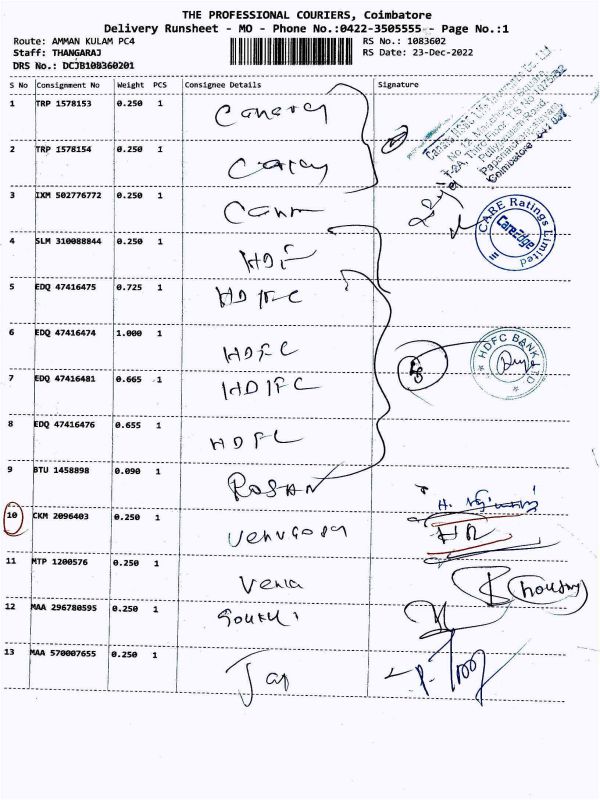 THE PROFESSIONAL COURIERS, Coimbatore
Delivery Runsheet - MO - Phone No.:0422-3505555-- Page No.:1
Route: AMMAN KULAM PC4 RS No.: 1083602
Staff: THANGARAJ RS Date: 23-Dec-2022
DRS No.: DCJB108360201
S No Consignment No Weight PCS Consignee Details Signature
1 TRP 1578153 0.250 1
2 TRP 1578154 0.250 1
3 IXM 502776772 0.250 1
4 SLM 310088844 0.250 1 HDF
5 EDQ 47416475 0.725 1 HDFC
6 EDQ 47416474 1.000 1 HDFC
7 EDQ 47416481 0.665 1 HDFC
8 EDQ 47416476 0.655 1 HDFC
9 BTU 1458898 0.090 1 ROSAN
10 CKM 2096403 0.250 1
11 MTP 1200576 0.250 1
12 MAA 296780595 0.250 1
13 MAA 570007655 0.250 1
CARE Ratings Limited
CareEdge
HDFC BANK LTD